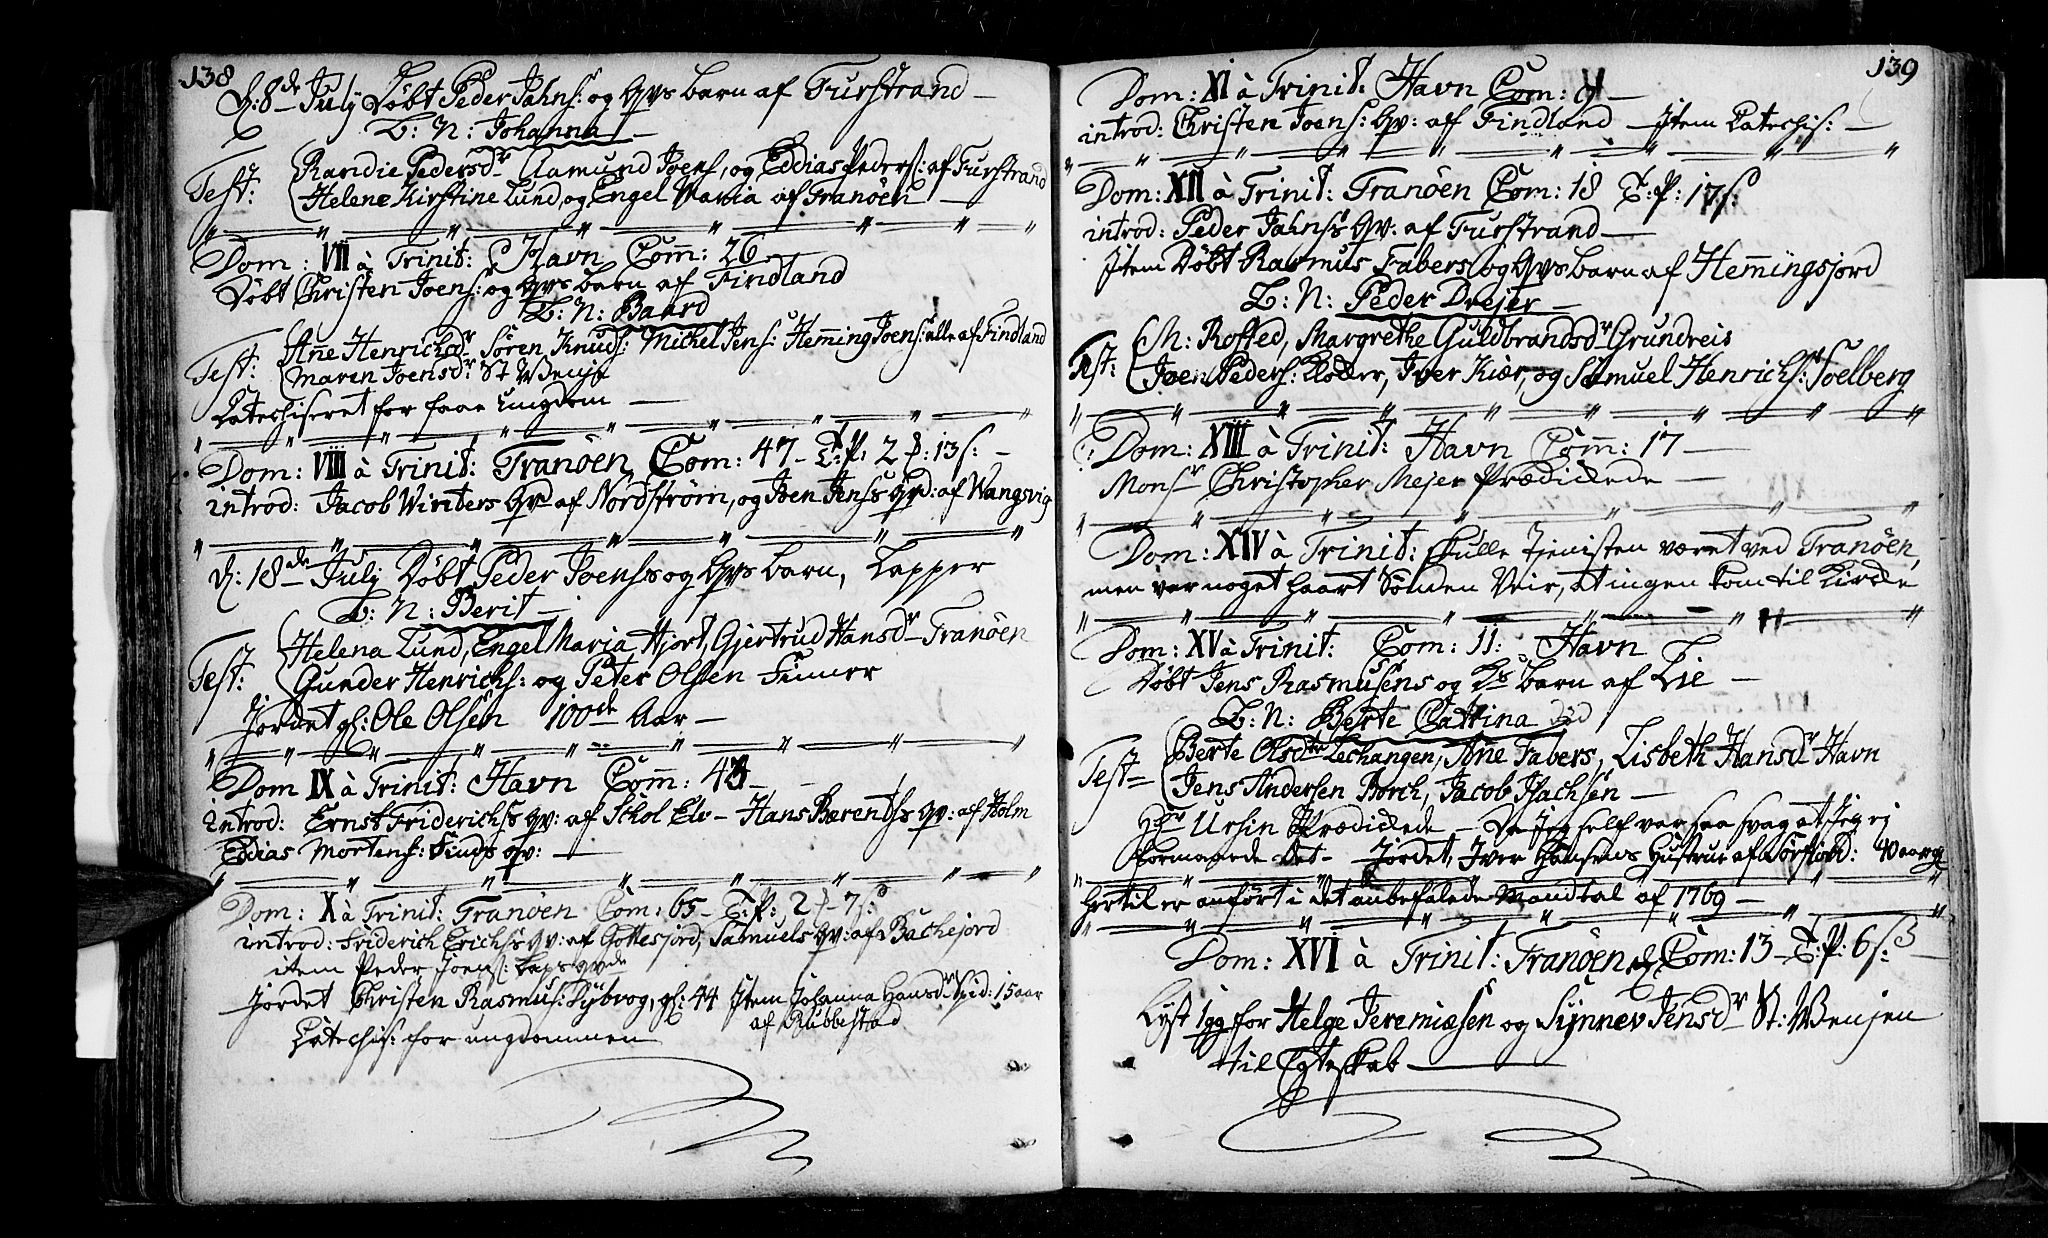 138
D: 8de July Døbt Peder Jahns: og Qvs barn af Furstrand
B: N: Johanna
Test: Randie Pedersdr Aamund Joens, og Eddias Peders: af Furstrand
Helene Kirstine Lund, og Engel Maria af Tranöen
Dom: VII à Trinit: Havn Com: 26
Døbt Christen Joens: og Qvs barn af Findland
B: N: Baard
Test: Ane Henrichsdr Sören Knuds: Michel Jens: Hemming Joens: alle af Findland
Maren Joensdr St Wenje
Catechiseret for faae ungdom
Dom: VIII à Trinit: Tranöen Com: 47 T: P: 2 : 13 s:
introd: Jacob Winters Qv af Nordström, og Joen Jenss Qv: af Wangsvig
D: 18de July Døbt Peder Joenss og Qvs barn, Lapper
B: N: Berit
Test: Helena Lund, Engel Maria Hjort, Gjertrud Hansdr Tranöen
Gunder Henrichs: og Peter Olsen Finner
Jordet gl: Ole Olsen 100de Aar
Dom IX à Trinit: Havn Com:
introd: Ernst Friderichss Qv: af Skol Elv - Hans Berentss Qv: af Holm
Eddias Mortens: Finds Qv:
Dom: X à Trinit: Tranöen Com: 65 - T: P: 2 - 7 s:
introd: Friderich Erichss Qv: af Gottesjord, Samuels Qv: af Bachejord
item Peder Joens: Laps Qvde
Jordet Christen Rasmus: Sybrog, gl: 44 Item Johanna Hansdr Spid: 15 aar
af Rubbestad
Catechis: for ungdommen
139
Dom: XI à Trinit: Havn Com: 9
introd: Christen Joens: Qv: af Findland - Item Catechis:
Dom: XII à Trinit: Tranöen Com: 18 T: P: 17 s:
introd: Peder Jahnss Qv: af Furstrand
Item Døbt Rasmus Fabers og Qvs barn af Hemingsjord
B: N: Peder Drejer
Test: M: Rossed, Margrethe Guldbrandsdr Grundreis
Joen Peders: Klocker, Iver Kiær, og Samuel Henrichs: Soelberg
Dom: XIII à Trinit: Havn Com: 17
Monsr Christopher Mejer Prædickede
Dom: XIV à Trinit: skulle Tjenisten været ved Tranöen,
men var noget haart Sönden Veir, at ingen kom til Kircke
Dom: XV à Trinit: Com: 11: Havn
Døbt Jens Rasmusens og Qs barn af Lie
B: N: Berte Catrina död
Test Berte Olsdtr Lechangen, Ane Fabers, Lisbeth Hansdr Havn
Jens Andersen Borch, Jacob Isachsen
Hr Ursin Prædickede - Da Jeg self var saa svag at Jeg ej
formaaede det - Jordet, Iver Hansens Hustrue af 40 aar gl
Hertil er anført i det anbefalede Mandtal af 1769
Dom: XVI à Trinit: Tranöen Com: 13 T: P: 6 s:
Lyst 1gg for Helge Jeremiæsen og Synnev Jensdr St: Wenjen
til Egteskab